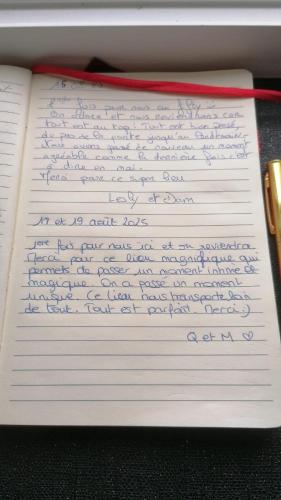 fois pour nous au
On adore et nous reviendrons car
tout est au top! Tout est bien pensé,
du pas de la porte jusqu'au
Nous avons passé de nouveau un moment
agréable comme la dernière fois c'est
à dire en mai.
Merci pour ce super lieu
Lesly et
17 et 19 août 2025
1ère fois pour nous ici et on reviendra
Merci pour ce lieu magnifique qui
permets de passer un moment intime et
magique. On a passé un moment
unique. Ce lieu nous transporte loin
de tout. Tout est parfait. Merci :)
Q et M ♡